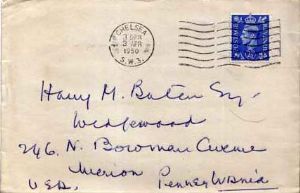 CHELSEA
3 APR
1950
S.W.3.
Harry M. Baten Esq
Wedgewood
246, N. Bowman Avenue
Merion Pennsylvania
USA.